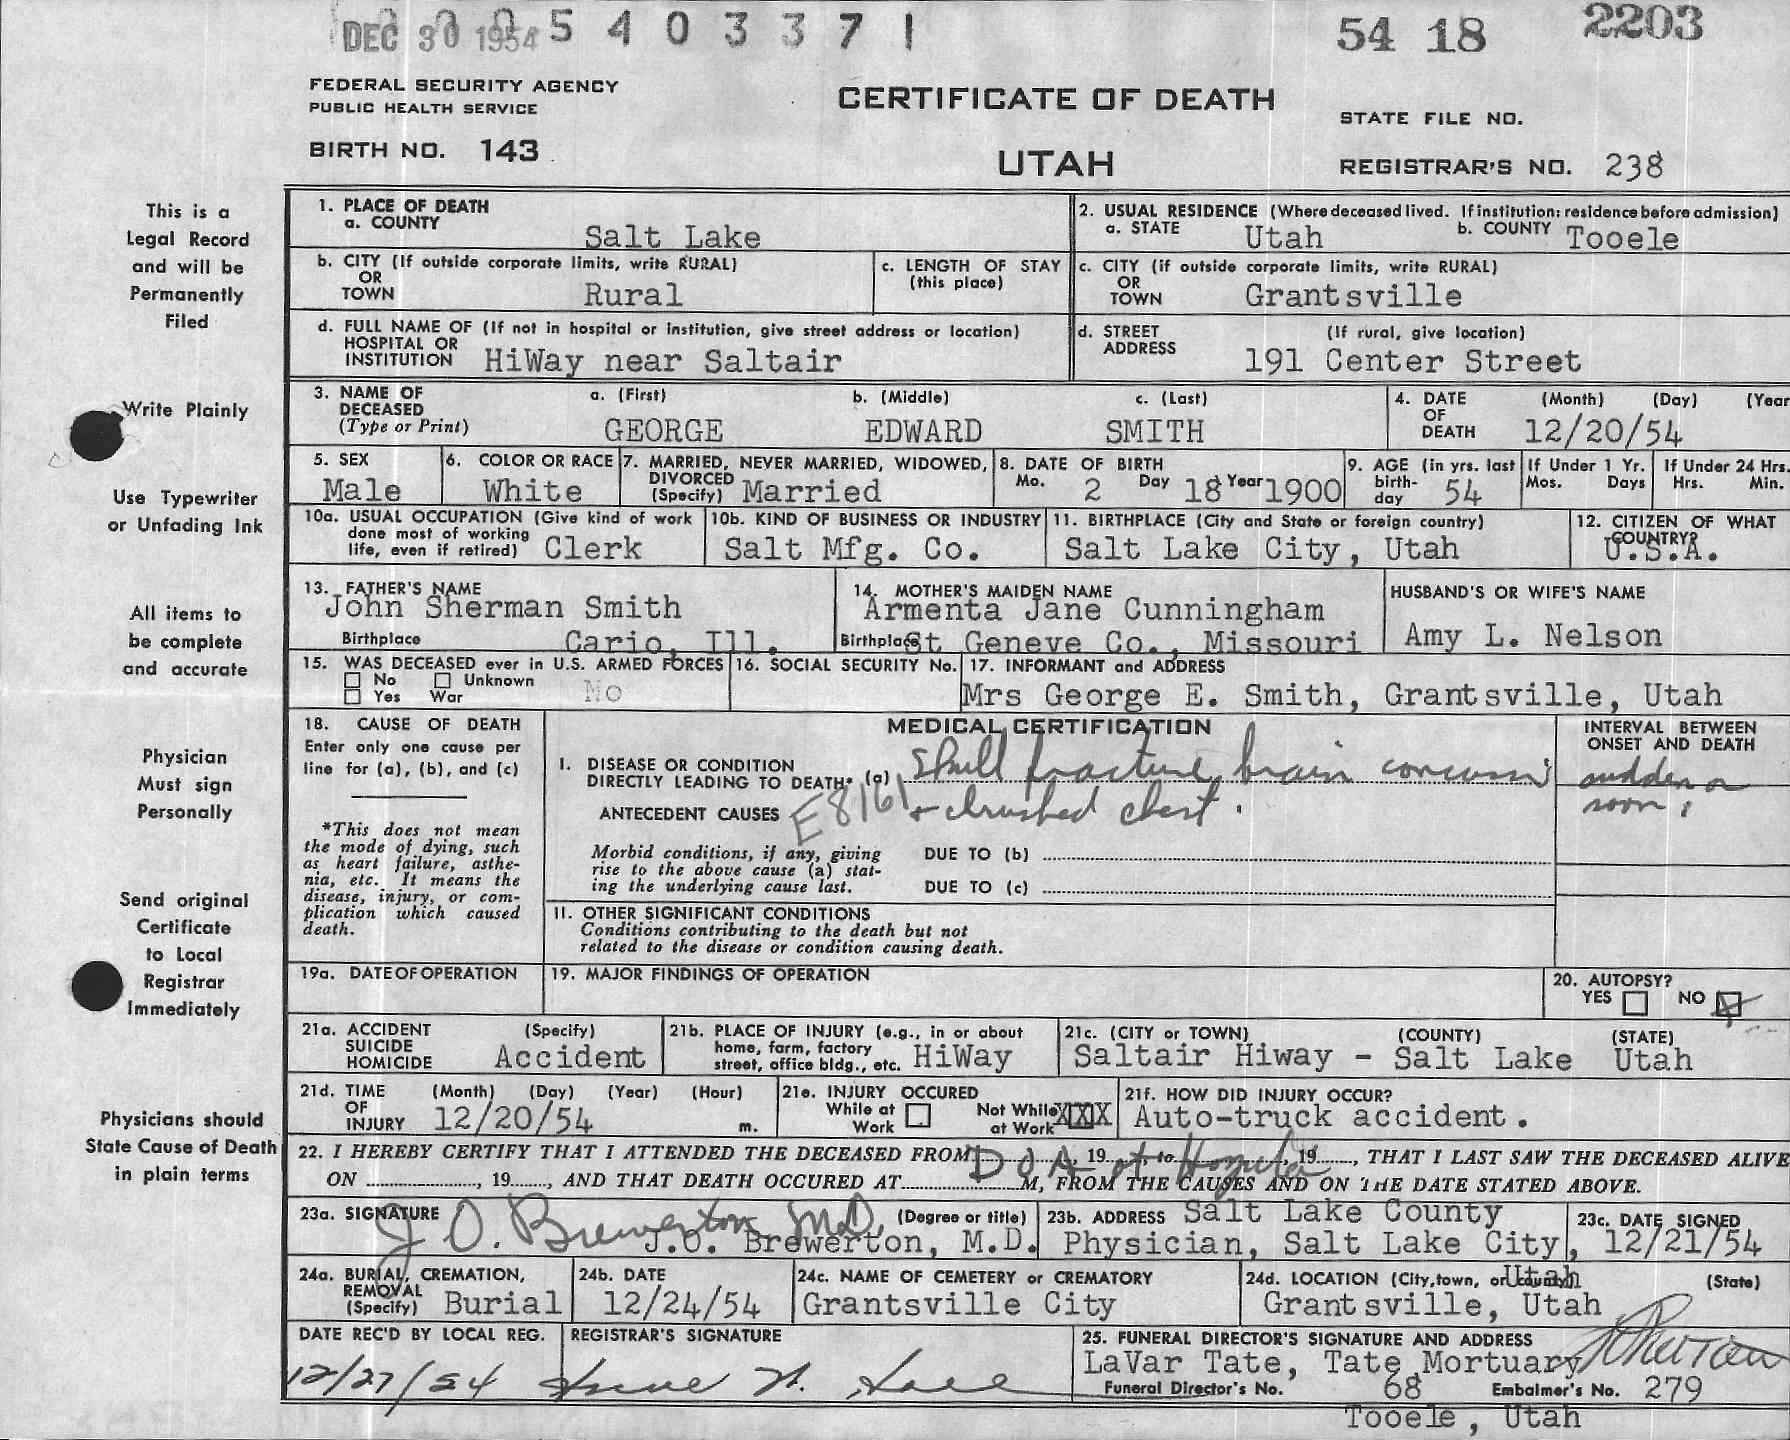 DEC 30 1954 5 4 0 3 3 7 1 54 18 2203
FEDERAL SECURITY AGENCY
PUBLIC HEALTH SERVICE
CERTIFICATE OF DEATH
STATE FILE NO.
BIRTH NO. 143
UTAH
REGISTRAR'S NO. 238
This is a
Legal Record
and will be
Permanently
Filed
Write Plainly
Use Typewriter
or Unfading Ink
All items to
be complete
and accurate
Physician
Must sign
Personally
Send original
Certificate
to Local
Registrar
Immediately
Physicians should
State Cause of Death
in plain terms
1. PLACE OF DEATH
a. COUNTY
Salt Lake
2. USUAL RESIDENCE (Where deceased lived. If institution: residence before admission)
a. STATE Utah b. COUNTY Tooele
b. CITY (If outside corporate limits, write RURAL)
OR
TOWN Rural
c. LENGTH OF STAY
(this place)
c. CITY (if outside corporate limits, write RURAL)
OR
TOWN Grantsville
d. FULL NAME OF (If not in hospital or institution, give street address or location)
HOSPITAL OR
INSTITUTION HiWay near Saltair
d. STREET (If rural, give location)
ADDRESS 191 Center Street
3. NAME OF a. (First) b. (Middle) c. (Last)
DECEASED
(Type or Print) GEORGE EDWARD SMITH
4. DATE (Month) (Day) (Year
OF
DEATH 12/20/54
5. SEX
Male
6. COLOR OR RACE
White
7. MARRIED, NEVER MARRIED, WIDOWED,
DIVORCED
(Specify) Married
8. DATE OF BIRTH
Mo. 2 Day 18 Year 1900
9. AGE (in yrs. last
birth-
day 54
If Under 1 Yr.
Mos. Days
If Under 24 Hrs.
Hrs. Min.
10a. USUAL OCCUPATION (Give kind of work
done most of working
life, even if retired) Clerk
10b. KIND OF BUSINESS OR INDUSTRY
Salt Mfg. Co.
11. BIRTHPLACE (City and State or foreign country)
Salt Lake City, Utah
12. CITIZEN OF WHAT
COUNTRY?
U.S.A.
13. FATHER'S NAME
John Sherman Smith
Birthplace Cario, Ill.
14. MOTHER'S MAIDEN NAME
Armenta Jane Cunningham
Birthplace St Geneve Co., Missouri
HUSBAND'S OR WIFE'S NAME
Amy L. Nelson
15. WAS DECEASED ever in U.S. ARMED FORCES
No Unknown
Yes War No
16. SOCIAL SECURITY No.
17. INFORMANT and ADDRESS
Mrs George E. Smith, Grantsville, Utah
18. CAUSE OF DEATH
Enter only one cause per
line for (a), (b), and (c)
*This does not mean
the mode of dying, such
as heart failure, asthe-
nia, etc. It means the
disease, injury, or com-
plication which caused
death.
MEDICAL CERTIFICATION
INTERVAL BETWEEN
ONSET AND DEATH
I. DISEASE OR CONDITION
DIRECTLY LEADING TO DEATH* (a) Skull fracture, brain
sudden or
soon,
ANTECEDENT CAUSES E8161 + chrushed chest.
Morbid conditions, if any, giving
rise to the above cause (a) stat-
ing the underlying cause last.
DUE TO (b)
DUE TO (c)
II. OTHER SIGNIFICANT CONDITIONS
Conditions contributing to the death but not
related to the disease or condition causing death.
19a. DATE OF OPERATION
19. MAJOR FINDINGS OF OPERATION
20. AUTOPSY?
YES NO X
21a. ACCIDENT (Specify)
SUICIDE
HOMICIDE Accident
21b. PLACE OF INJURY (e.g., in or about
home, farm, factory
street, office bldg., etc. HiWay
21c. (CITY or TOWN) (COUNTY) (STATE)
Saltair Hiway - Salt Lake Utah
21d. TIME (Month) (Day) (Year) (Hour)
OF
INJURY 12/20/54 m.
21e. INJURY OCCURED
While at
Work
Not While
at Work XXX
21f. HOW DID INJURY OCCUR?
Auto-truck accident.
22. I HEREBY CERTIFY THAT I ATTENDED THE DECEASED FROM D O A, 19 at, to Hospital, 19, THAT I LAST SAW THE DECEASED ALIVE
ON , 19, AND THAT DEATH OCCURED AT M, FROM THE CAUSES AND ON THE DATE STATED ABOVE.
23a. SIGNATURE (Degree or title)
J O. Brewerton M.D.
J.O. Brewerton, M.D.
23b. ADDRESS Salt Lake County
Physician, Salt Lake City,
Utah
23c. DATE SIGNED
12/21/54
24a. BURIAL, CREMATION,
REMOVAL
(Specify) Burial
24b. DATE
12/24/54
24c. NAME OF CEMETERY or CREMATORY
Grantsville City
24d. LOCATION (City, town, or county) (State)
Grantsville, Utah
DATE REC'D BY LOCAL REG.
12/27/54
REGISTRAR'S SIGNATURE
25. FUNERAL DIRECTOR'S SIGNATURE AND ADDRESS
LaVar Tate, Tate Mortuary
Funeral Director's No. 68 Embalmer's No. 279
Tooele, Utah